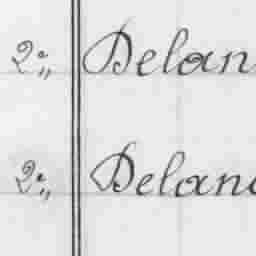 2° „ Delan
2° „ Deland